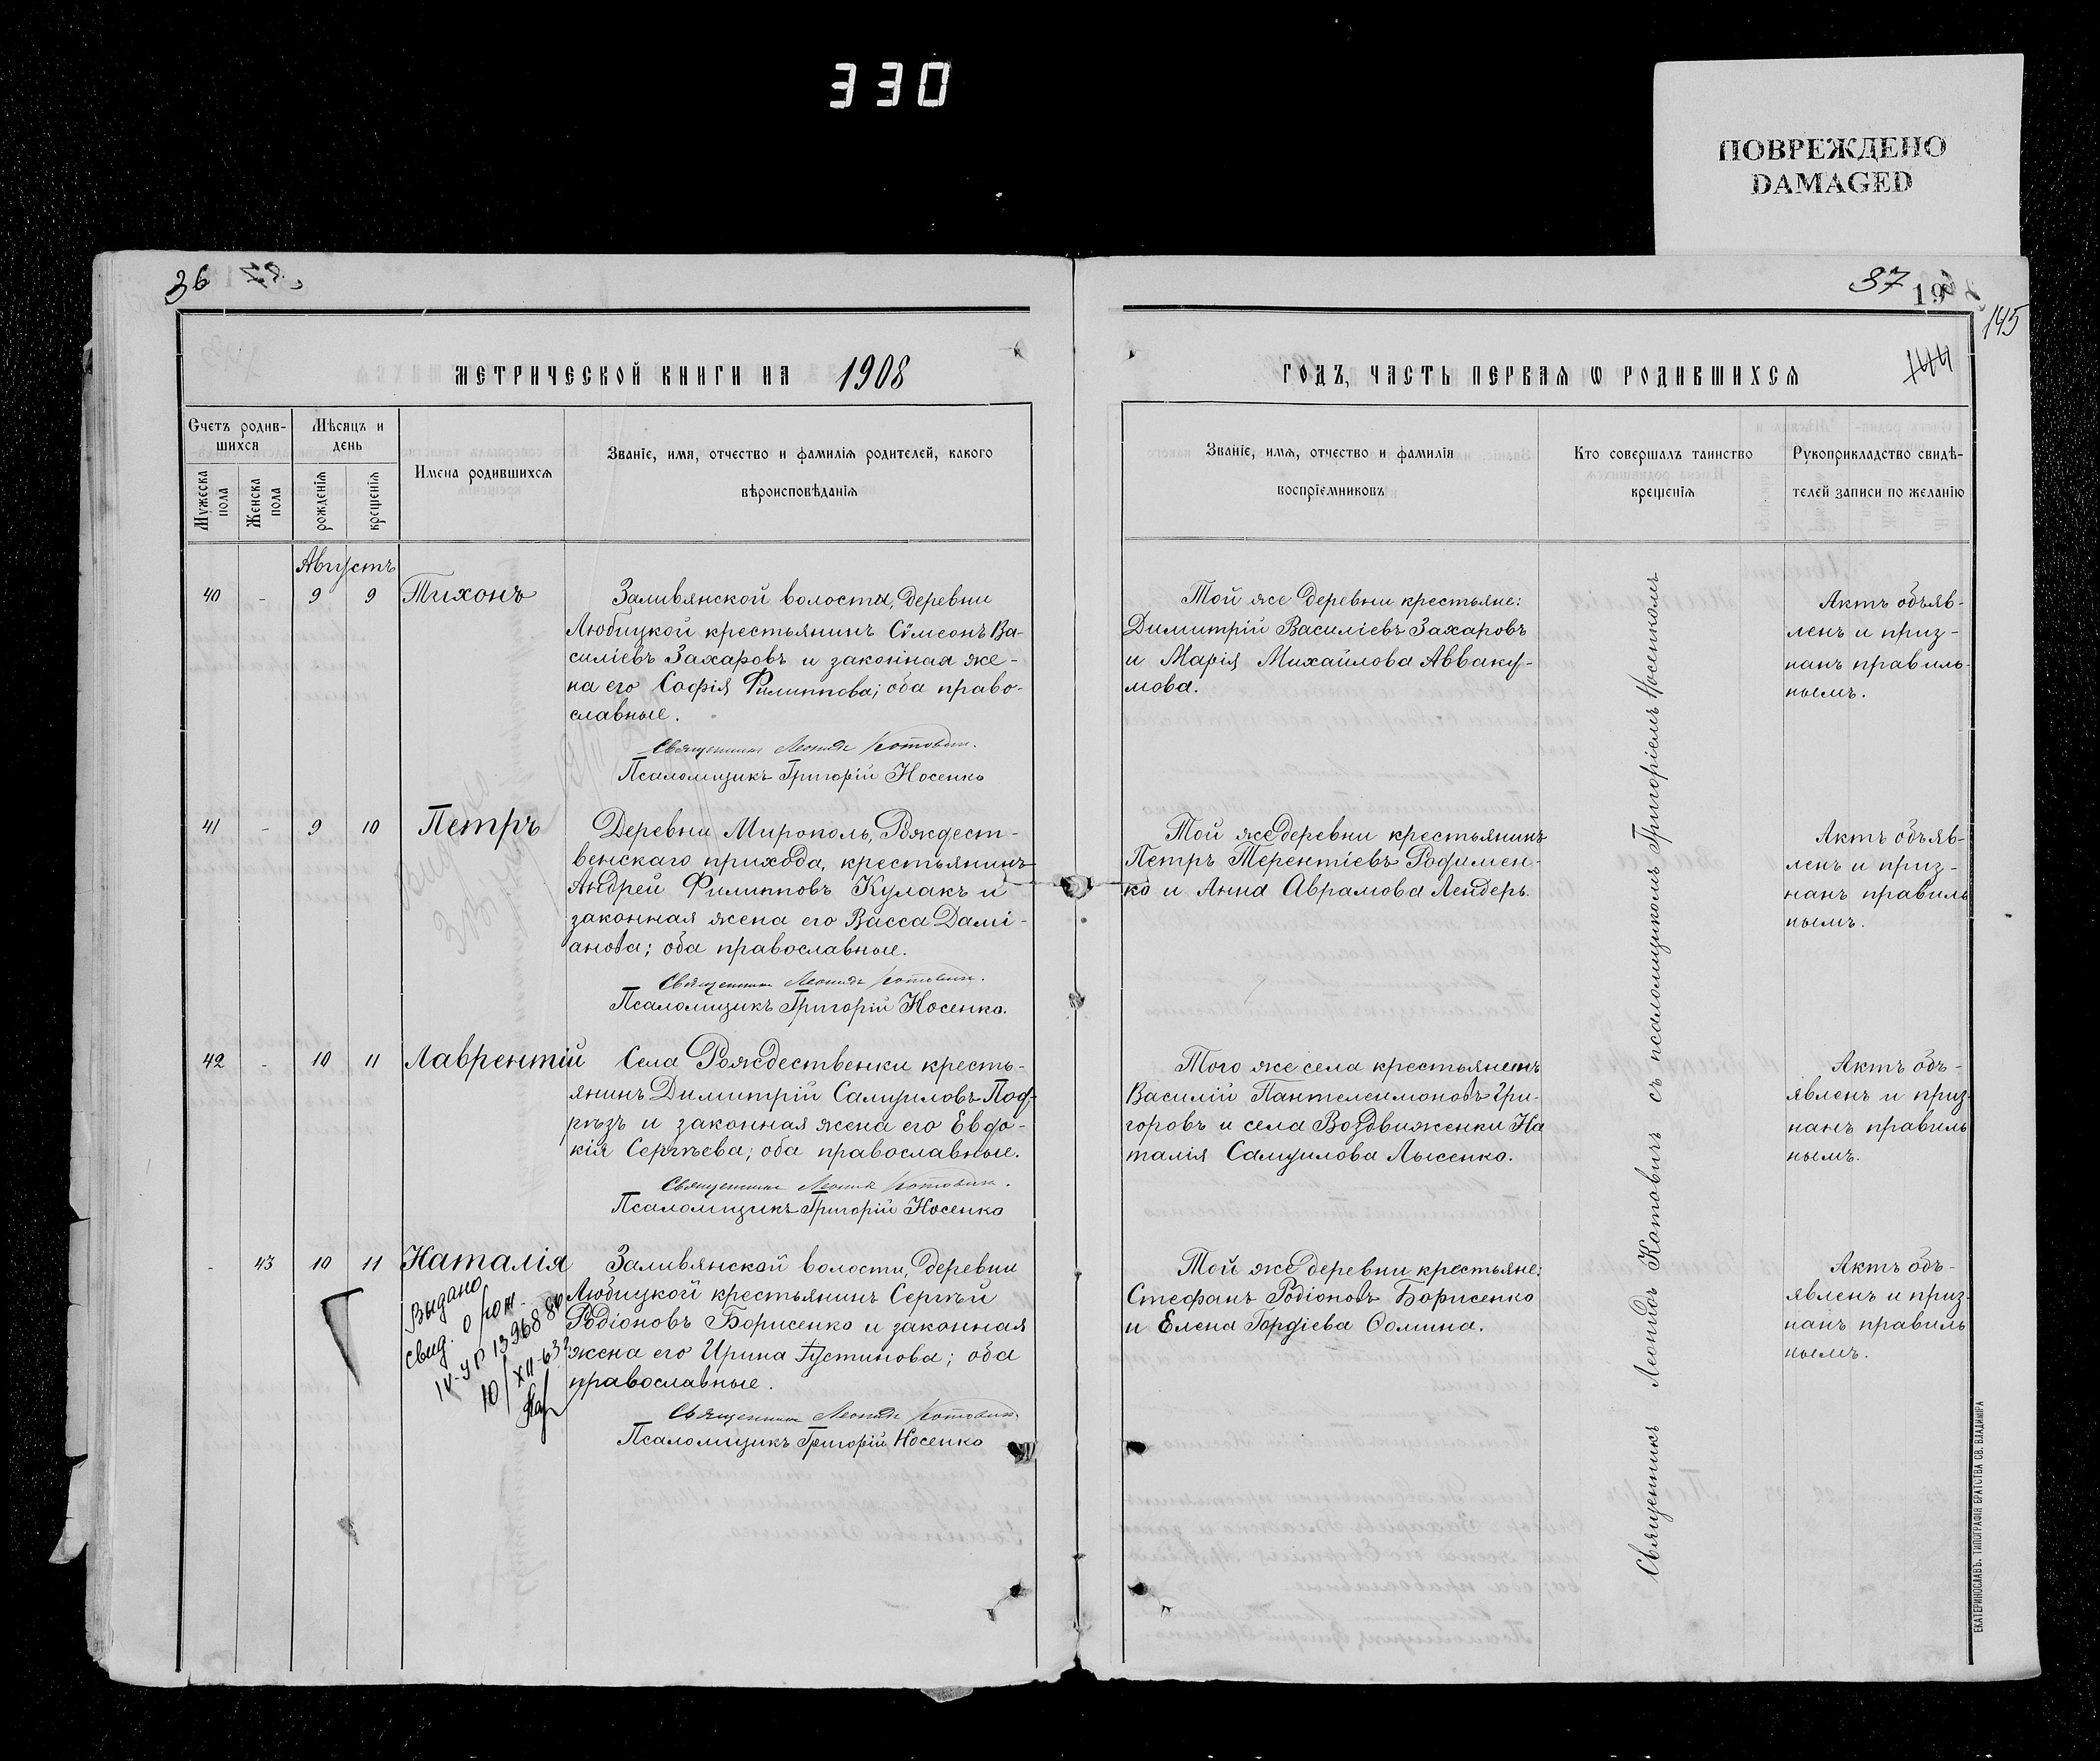 330
ПОВРЕЖДЕНО
DAMAGED
36
МЕТРИЧЕСКОЙ КНИГИ НА 1908
Счетъ родив-
шихся
Мѣсяцъ и
день
Мужеска
пола
Женска
пола
рожденія
крещенія
Имена родившихся
Званіе, имя, отчество и фамилія родителей, какого
вѣроисповѣданія
Августъ
40 - 9 9 Тихонъ
Заливянской волости, деревни
Любицкой крестьянинъ Сѵмеонъ Ва-
силіевъ Захаровъ и законная же-
на его Софія Филиппова; оба право-
славные.
Священникъ Леонидъ Котовичъ.
Псаломщикъ Григорій Носенко
41 - 9 10 Петръ
Деревни Мирополь, Рождест-
венскаго прихода, крестьянинъ
Андрей Филипповъ Кулакъ и
законная жена его Васса Дамі-
анова; оба православные.
Священникъ Леонидъ Котовичъ.
Псаломщикъ Григорій Носенко.
42 - 10 11 Лаврентій
Села Рождественки кресть-
янинъ Димитрій Самуиловъ Под-
рѣзъ и законная жена его Евдо-
кія Сергѣева; оба православные.
Священникъ Леонидъ Котовичъ.
Псаломщикъ Григорій Носенко
- 43 10 11 Наталія
Заливянской волости, деревни
Любицкой крестьянинъ Сергѣй
Родіоновъ Борисенко и законная
жена его Ирина Іустинова; оба
православные.
Священникъ Леонидъ Котовичъ
Псаломщикъ Григорій Носенко
Выдано
свид. о рож.
IV-УР 1396880
10/XII-63г
37
19
145
144
ГОДЪ, ЧАСТЬ ПЕРВАЯ Ѡ РОДИВШИХСЯ
Званіе, имя, отчество и фамилія
воспріемниковъ
Кто совершалъ таинство
крещенія
Рукоприкладство свидѣ-
телей записи по желанію
Той же деревни крестьяне:
Димитрій Василіевъ Захаровъ
и Марія Михайлова Авваку-
мова.
Актъ объяв-
ленъ и приз-
нанъ правиль-
нымъ.
Той же деревни крестьянинъ
Петръ Терентіевъ Родимен-
ко и Анна Аврамова Лендеръ.
Актъ объяв-
ленъ и приз-
нанъ правиль
нымъ.
Того же села крестьянинъ
Василій Пантелеимоновъ Гри-
горовъ и села Воздвиженки На
талія Самуилова Лысенко.
Актъ объ-
явленъ и приз-
нанъ правиль
нымъ.
Той же деревни крестьяне:
Стефанъ Родіоновъ Борисенко
и Елена Гордіева Ѳомина.
Актъ объ-
явленъ и приз-
нанъ правиль
нымъ.
Священникъ Леонидъ Котовичъ съ псаломщикомъ Григоріемъ Носенкомъ
ЕКАТЕРИНОСЛАВЪ. ТИПОГРАФІЯ БРАТСТВА СВ. ВЛАДИМІРА